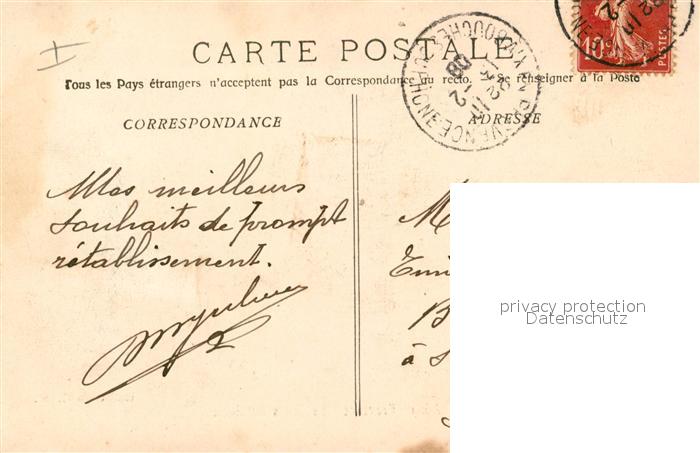 CARTE POSTALE
Tous les Pays étrangers n'acceptent pas la Correspondance au recto. - Se renseigner à la Poste
CORRESPONDANCE
ADRESSE
Mes meilleurs
souhaits de prompt
rétablissement.
M
Emi
B
à S
10c POSTES
privacy protection
Datenschutz